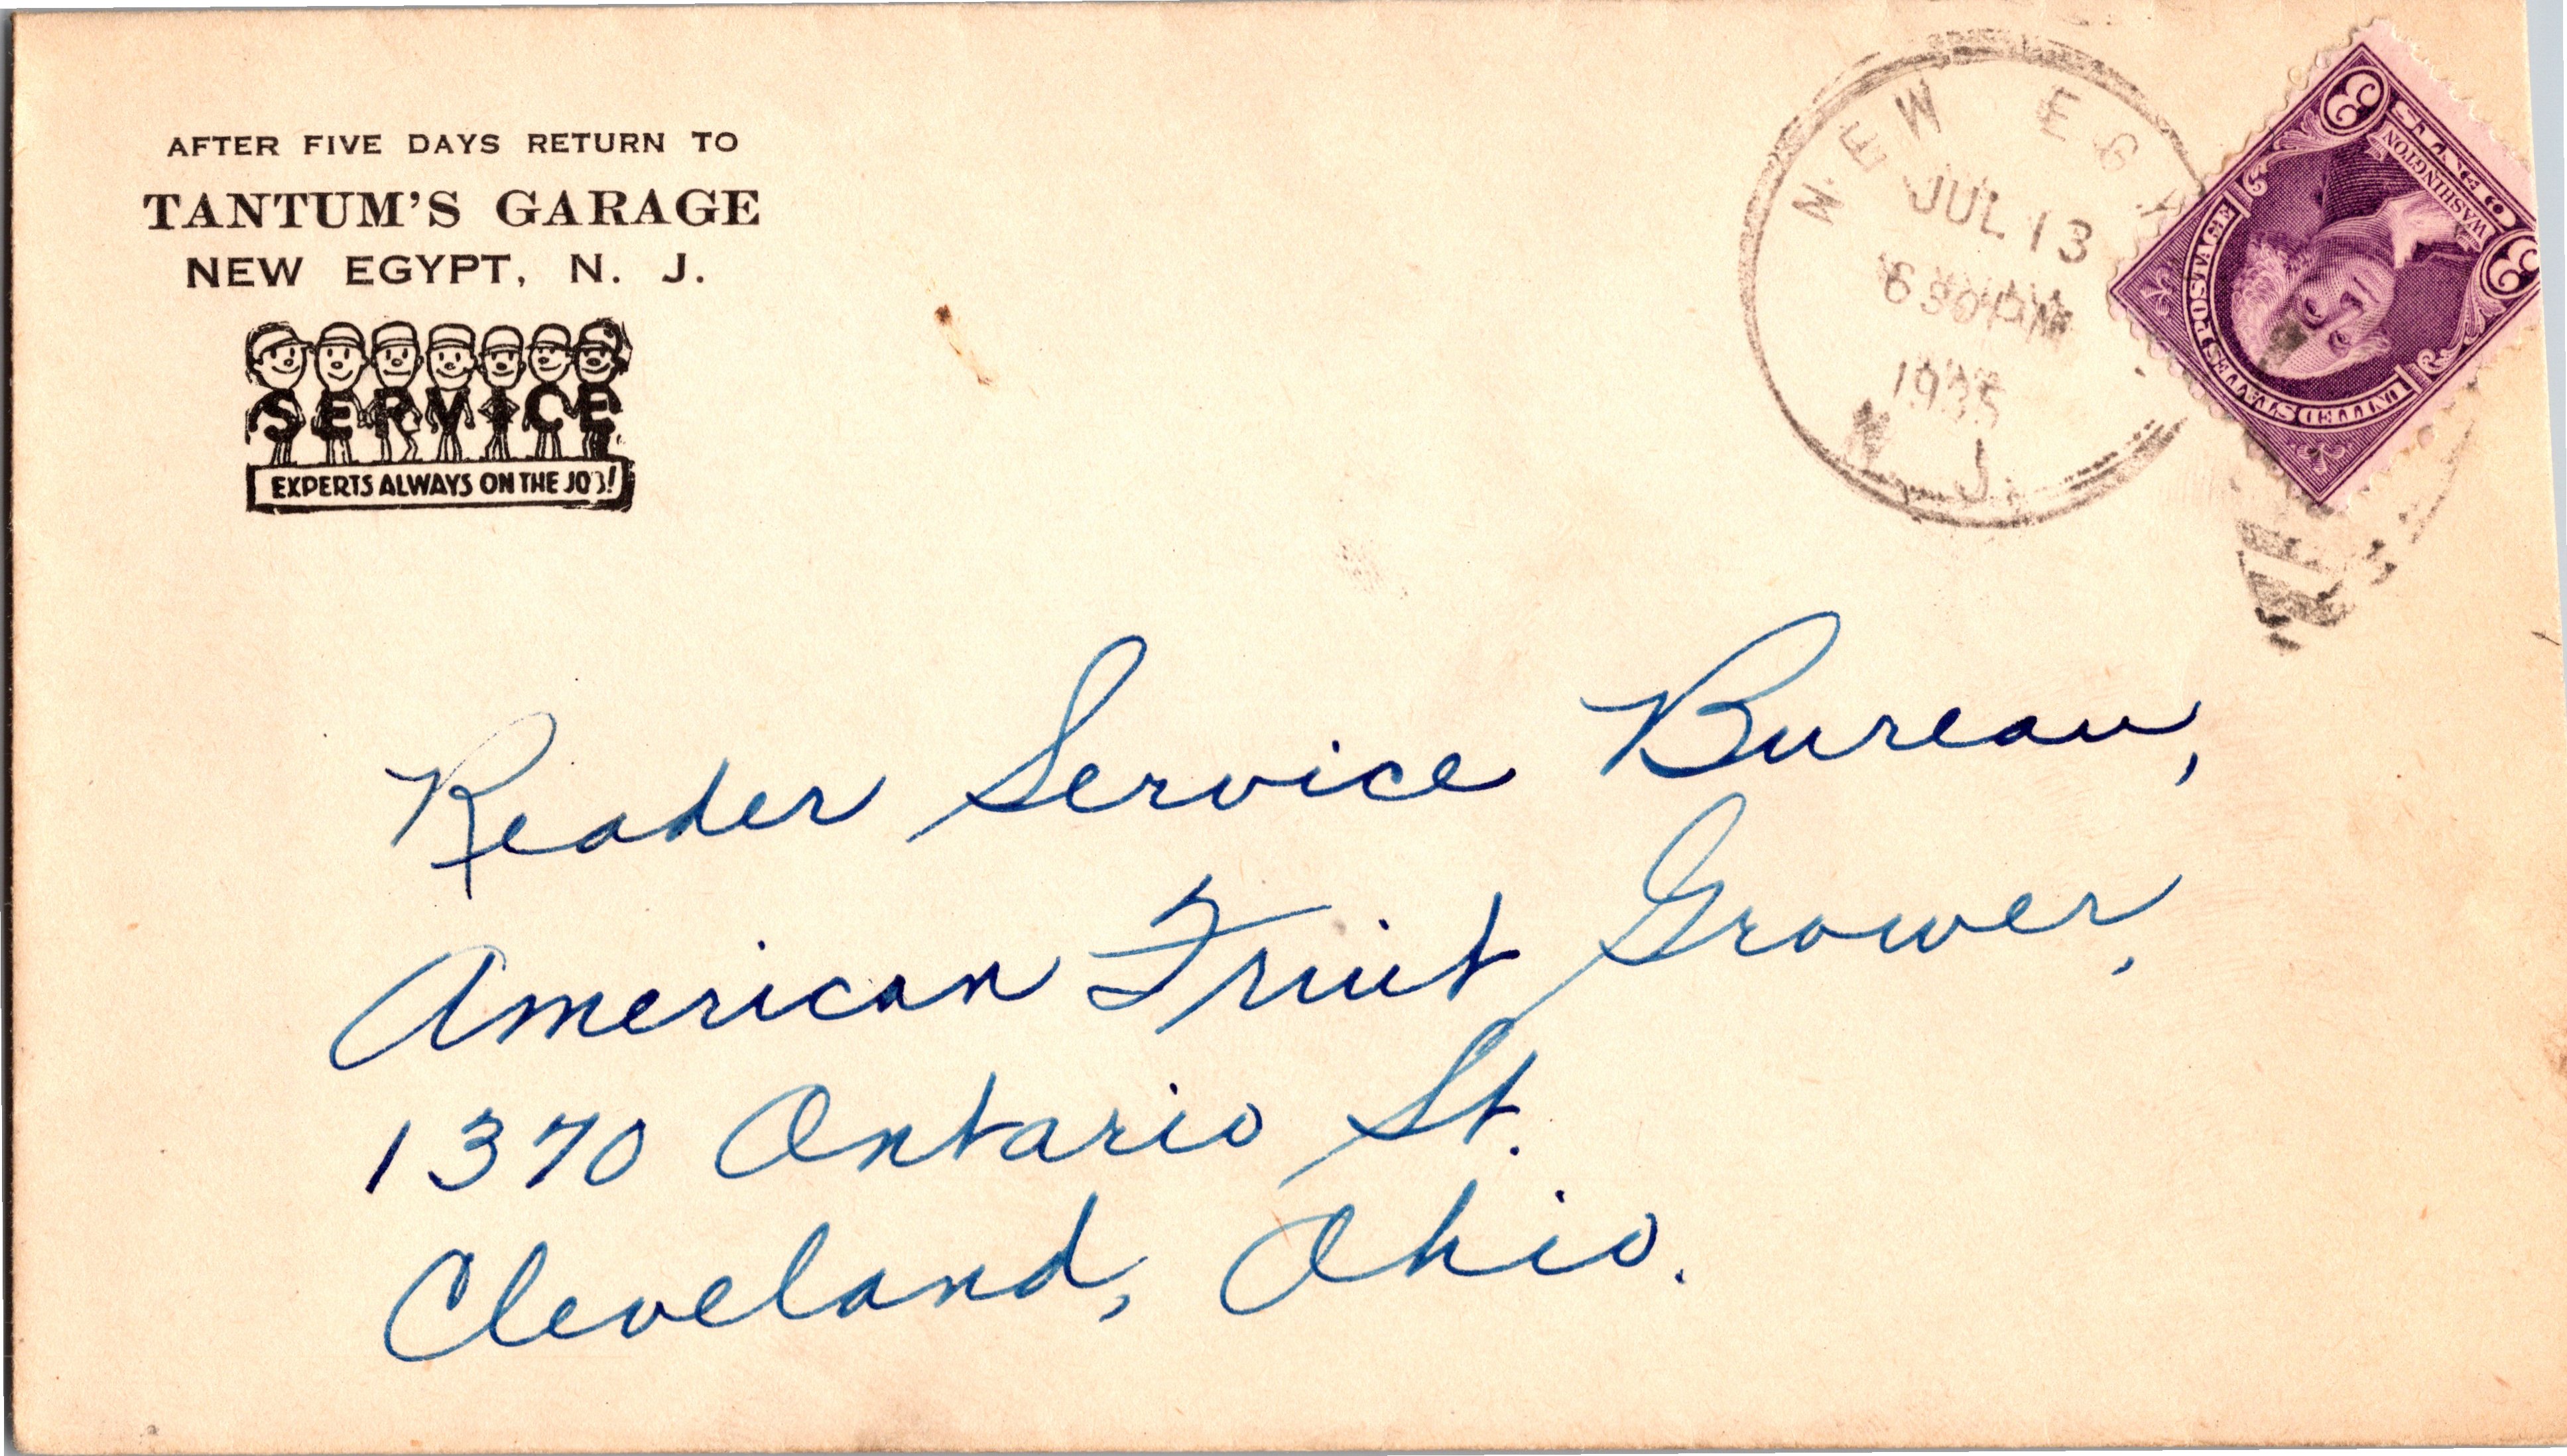 AFTER FIVE DAYS RETURN TO
TANTUM'S GARAGE
NEW EGYPT, N. J.
SERVICE
EXPERTS ALWAYS ON THE JOB!
NEW EGY
JUL 13
1935
N. J.
3 CENTS 3
WASHINGTON
UNITED STATES POSTAGE
Reader Service Bureau,
American Fruit Grower,
1370 Ontario St.
Cleveland, Ohio.